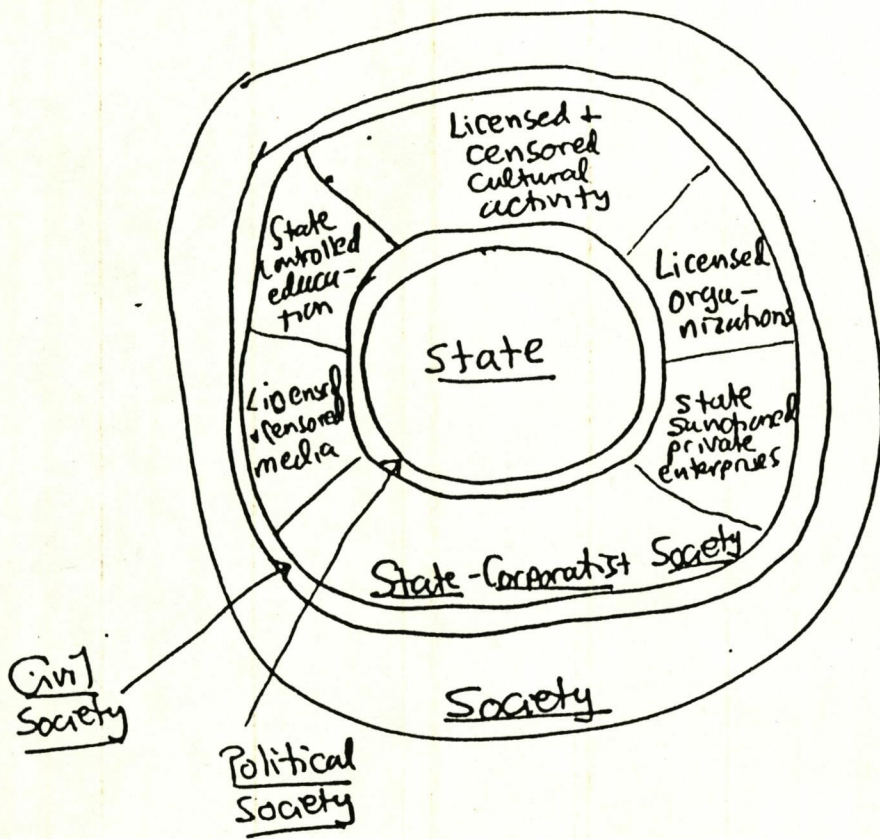 Licensed +
censored
cultural
activity
State
controlled
educa-
tion
Licensed
orga-
nizations
State
Licensed
+ censored
media
State
sanctioned
private
enterprises
State-Corporatist Society
Civil
Society
Society
Political
Society